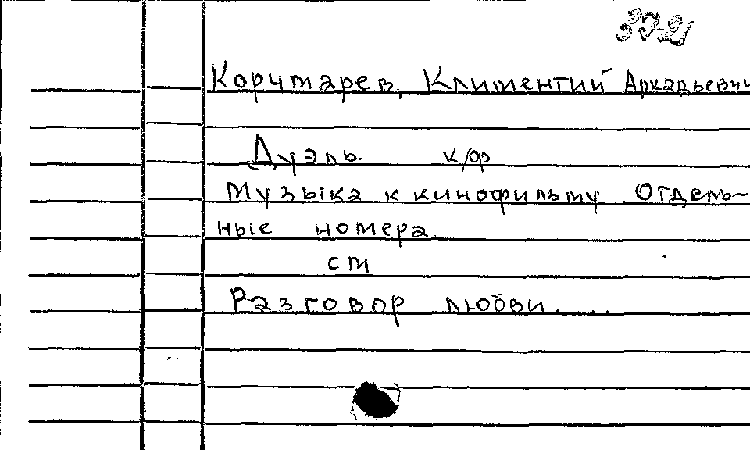 Корчмарев, Климентий Аркадьевич
Дуэль. к/ф
Музыка к кинофильму Отдель-
ные номера.
ст
Разговор любви....